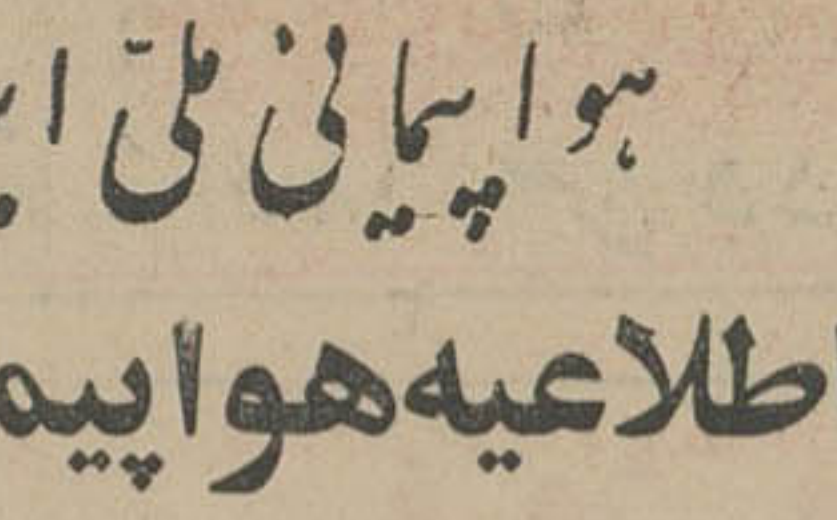 هواپیمائی ملّی ایـ
اطلاعیه هواپیمـ